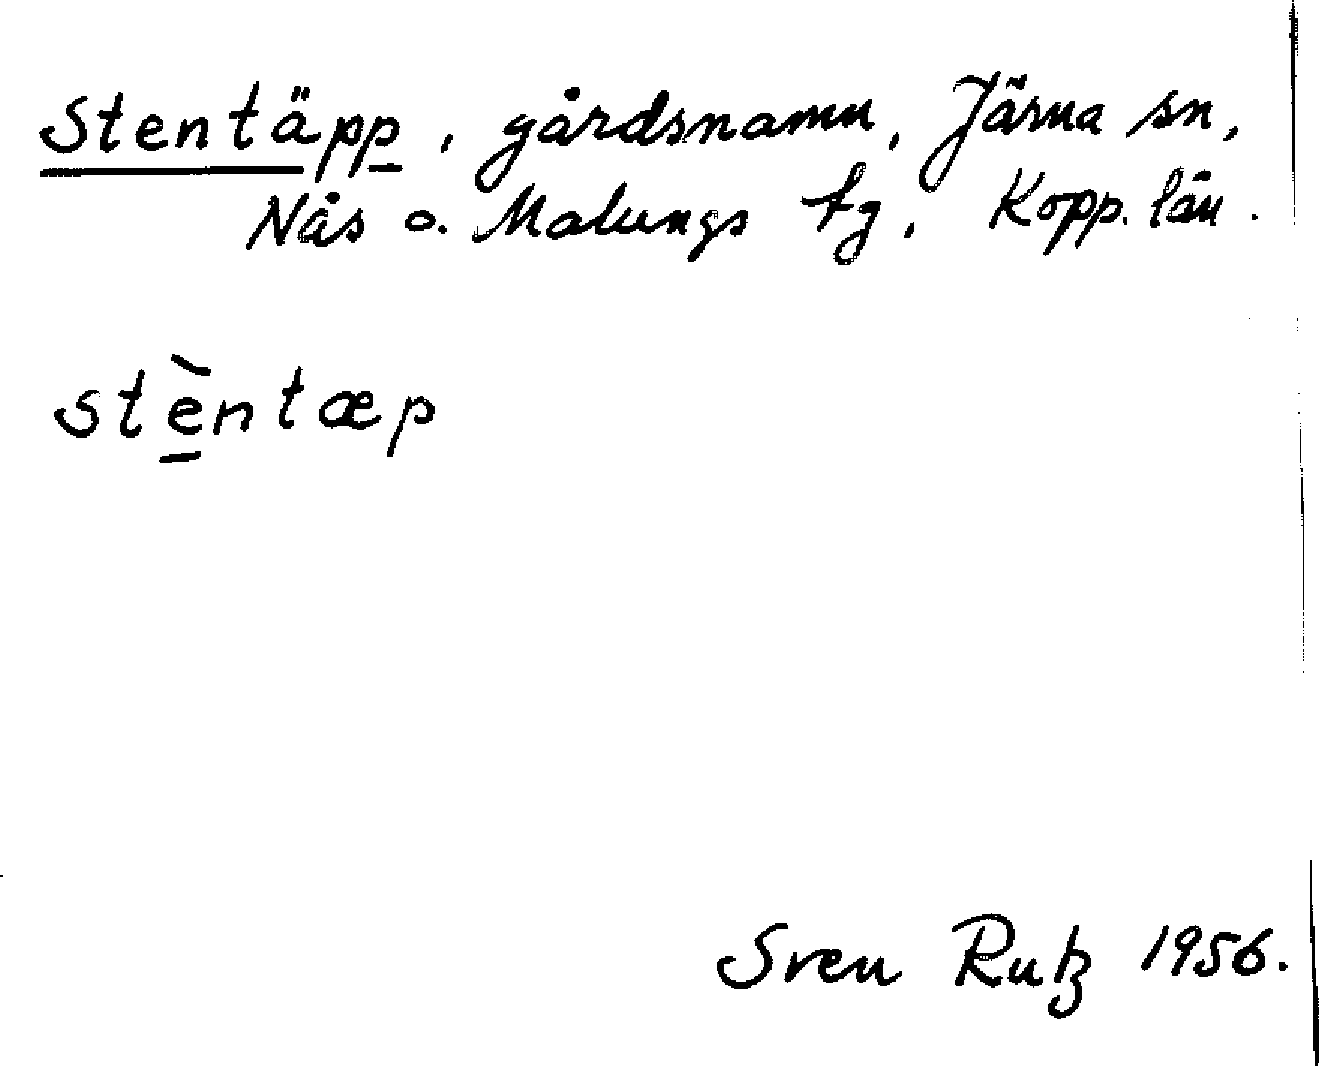 Stentäpp, gårdsnamn, Järna sn,
Nås o. Malungs tg, Kopp. län.
stèntæp
Sven Rutz 1956.